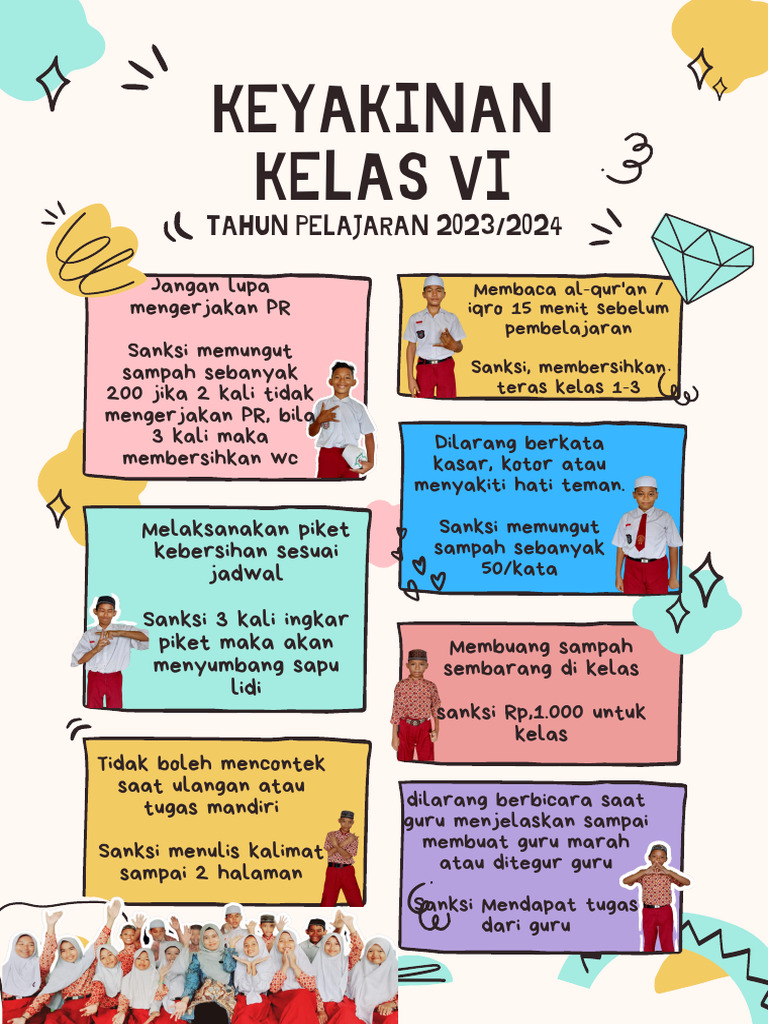 KEYAKINAN
KELAS VI
TAHUN PELAJARAN 2023/2024
Jangan lupa
mengerjakan PR
Sanksi memungut
sampah sebanyak
200 jika 2 kali tidak
mengerjakan PR, bila
3 kali maka
membersihkan wc
Membaca al-qur'an /
iqro 15 menit sebelum
pembelajaran
Sanksi, membersihkan
teras kelas 1-3
Dilarang berkata
kasar, kotor atau
menyakiti hati teman.
Sanksi memungut
sampah sebanyak
50/kata
Melaksanakan piket
kebersihan sesuai
jadwal
Sanksi 3 kali ingkar
piket maka akan
menyumbang sapu
lidi
Membuang sampah
sembarang di kelas
sanksi Rp,1.000 untuk
kelas
Tidak boleh mencontek
saat ulangan atau
tugas mandiri
Sanksi menulis kalimat
sampai 2 halaman
dilarang berbicara saat
guru menjelaskan sampai
membuat guru marah
atau ditegur guru
Sanksi Mendapat tugas
dari guru